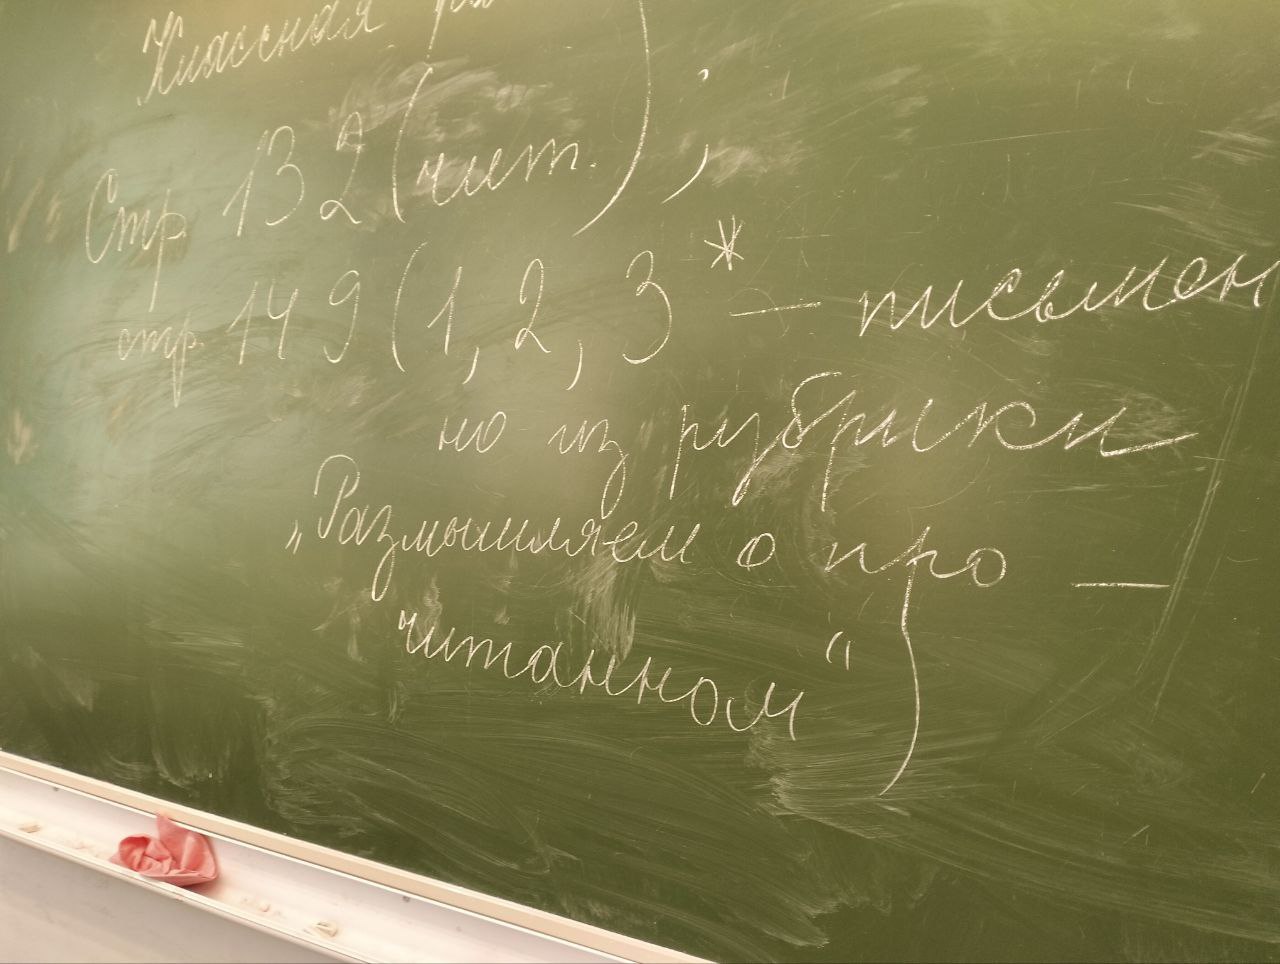 Классная
Стр 132 (чит.),
стр. 149 (1, 2, 3* – письмен
но из рубрики
„Размышляем о про –
читанном“)